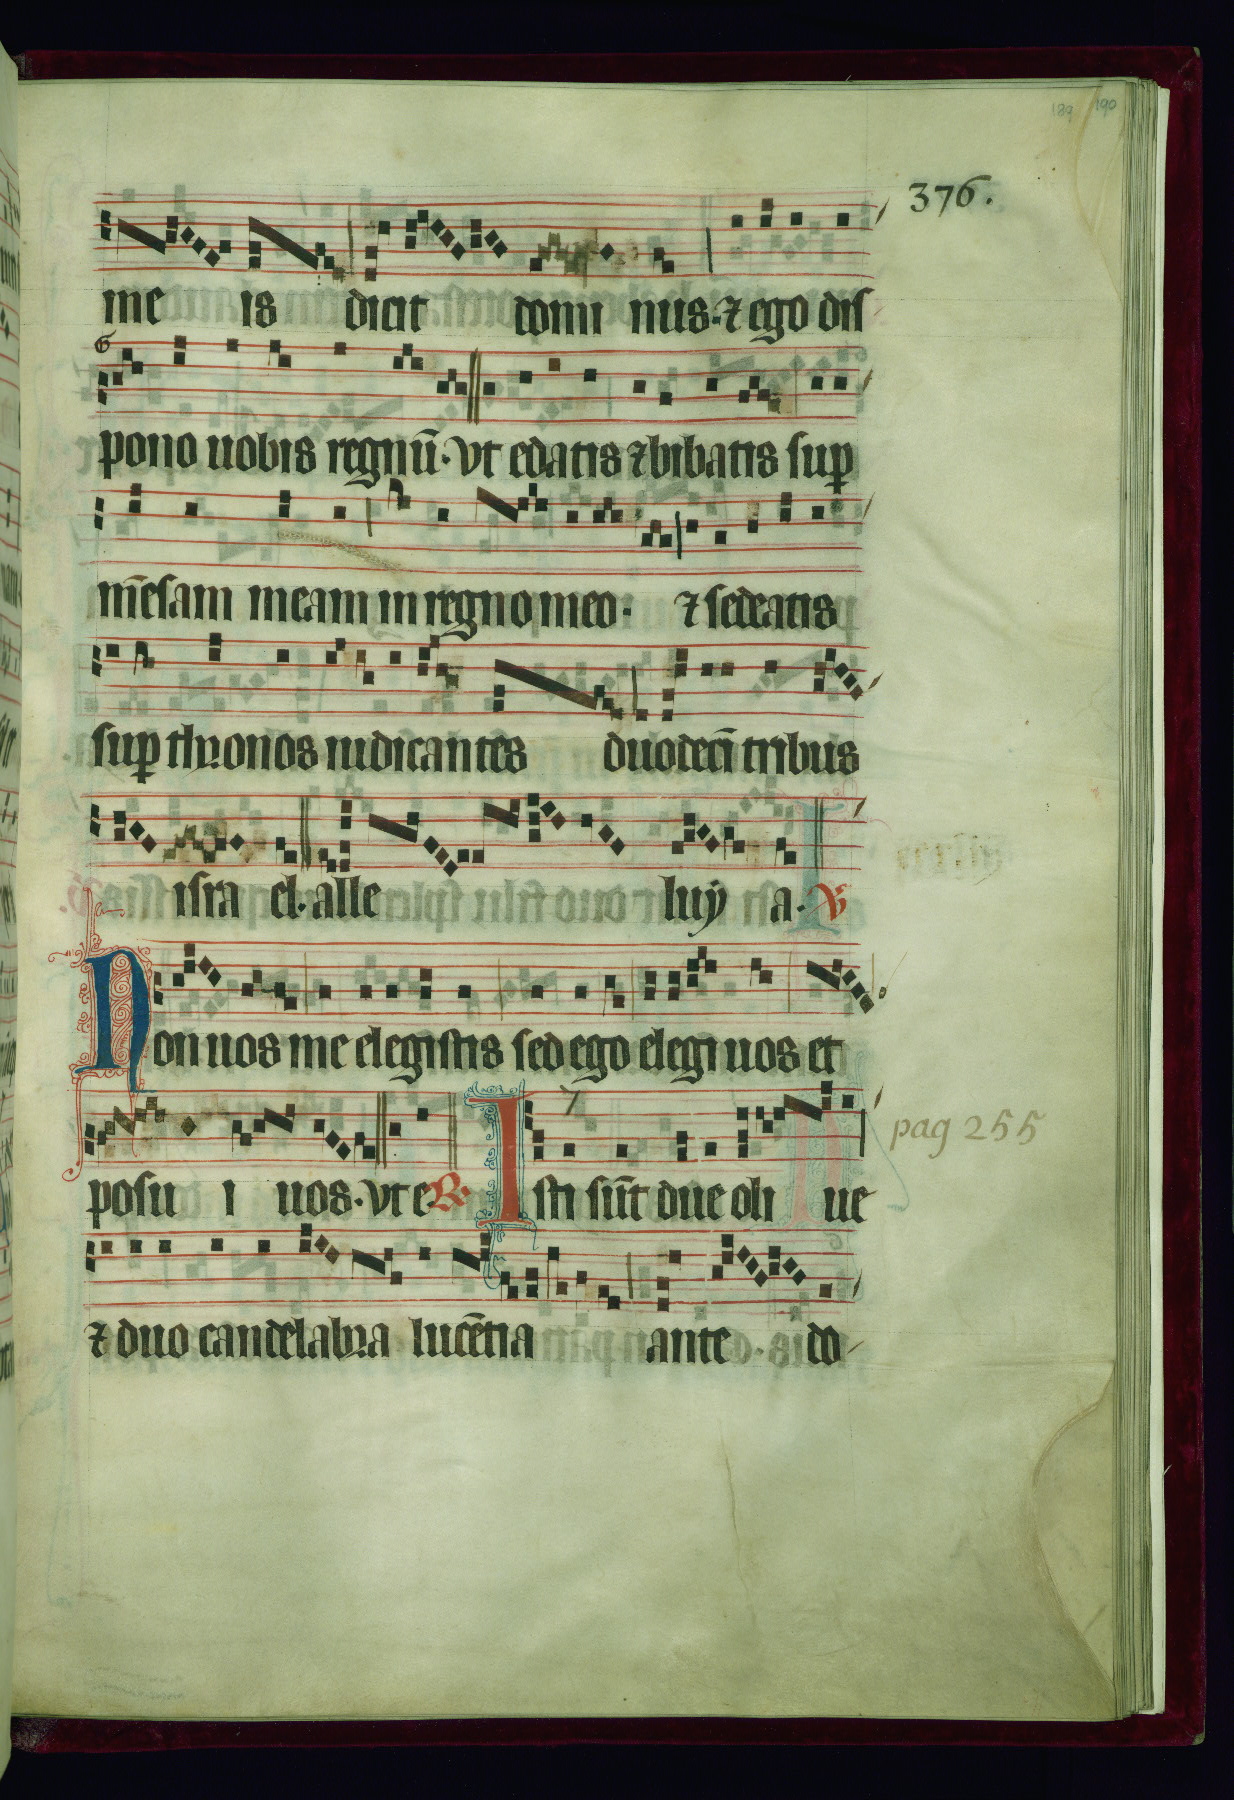 189 190
376.
me is dicit domi nus· ⁊ ego dis
pono uobis regnū· vt edatis ⁊ bibatis sup
m̄esam meam in regno meo· ⁊ sedeatis
sup thronos iudicantes duodecī tribus
isra el· alle luy a· V
Non uos me elegistis sed ego elegi uos et
posu i uos· vt e R Isti sūt due oli ue
pag 255
⁊ duo candelabra lucētia ante do